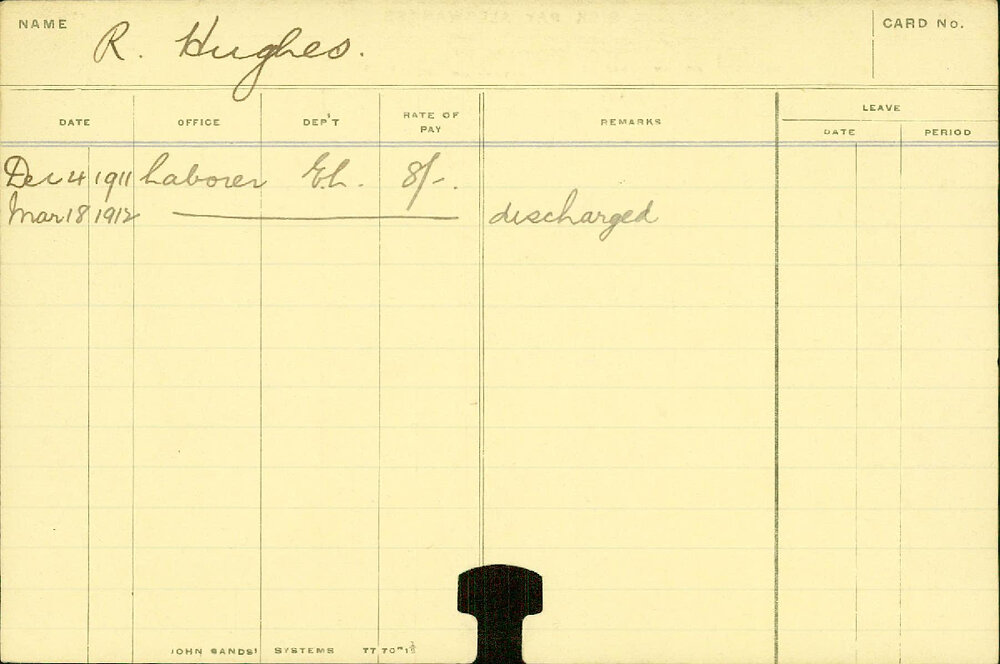 NAME R. Hughes. CARD No.
LEAVE
DATE OFFICE DEP'T RATE OF PAY REMARKS DATE PERIOD
Dec 4 1911 Laborer 8/-.
Mar 18 1912 discharged
JOHN SANDS' SYSTEMS